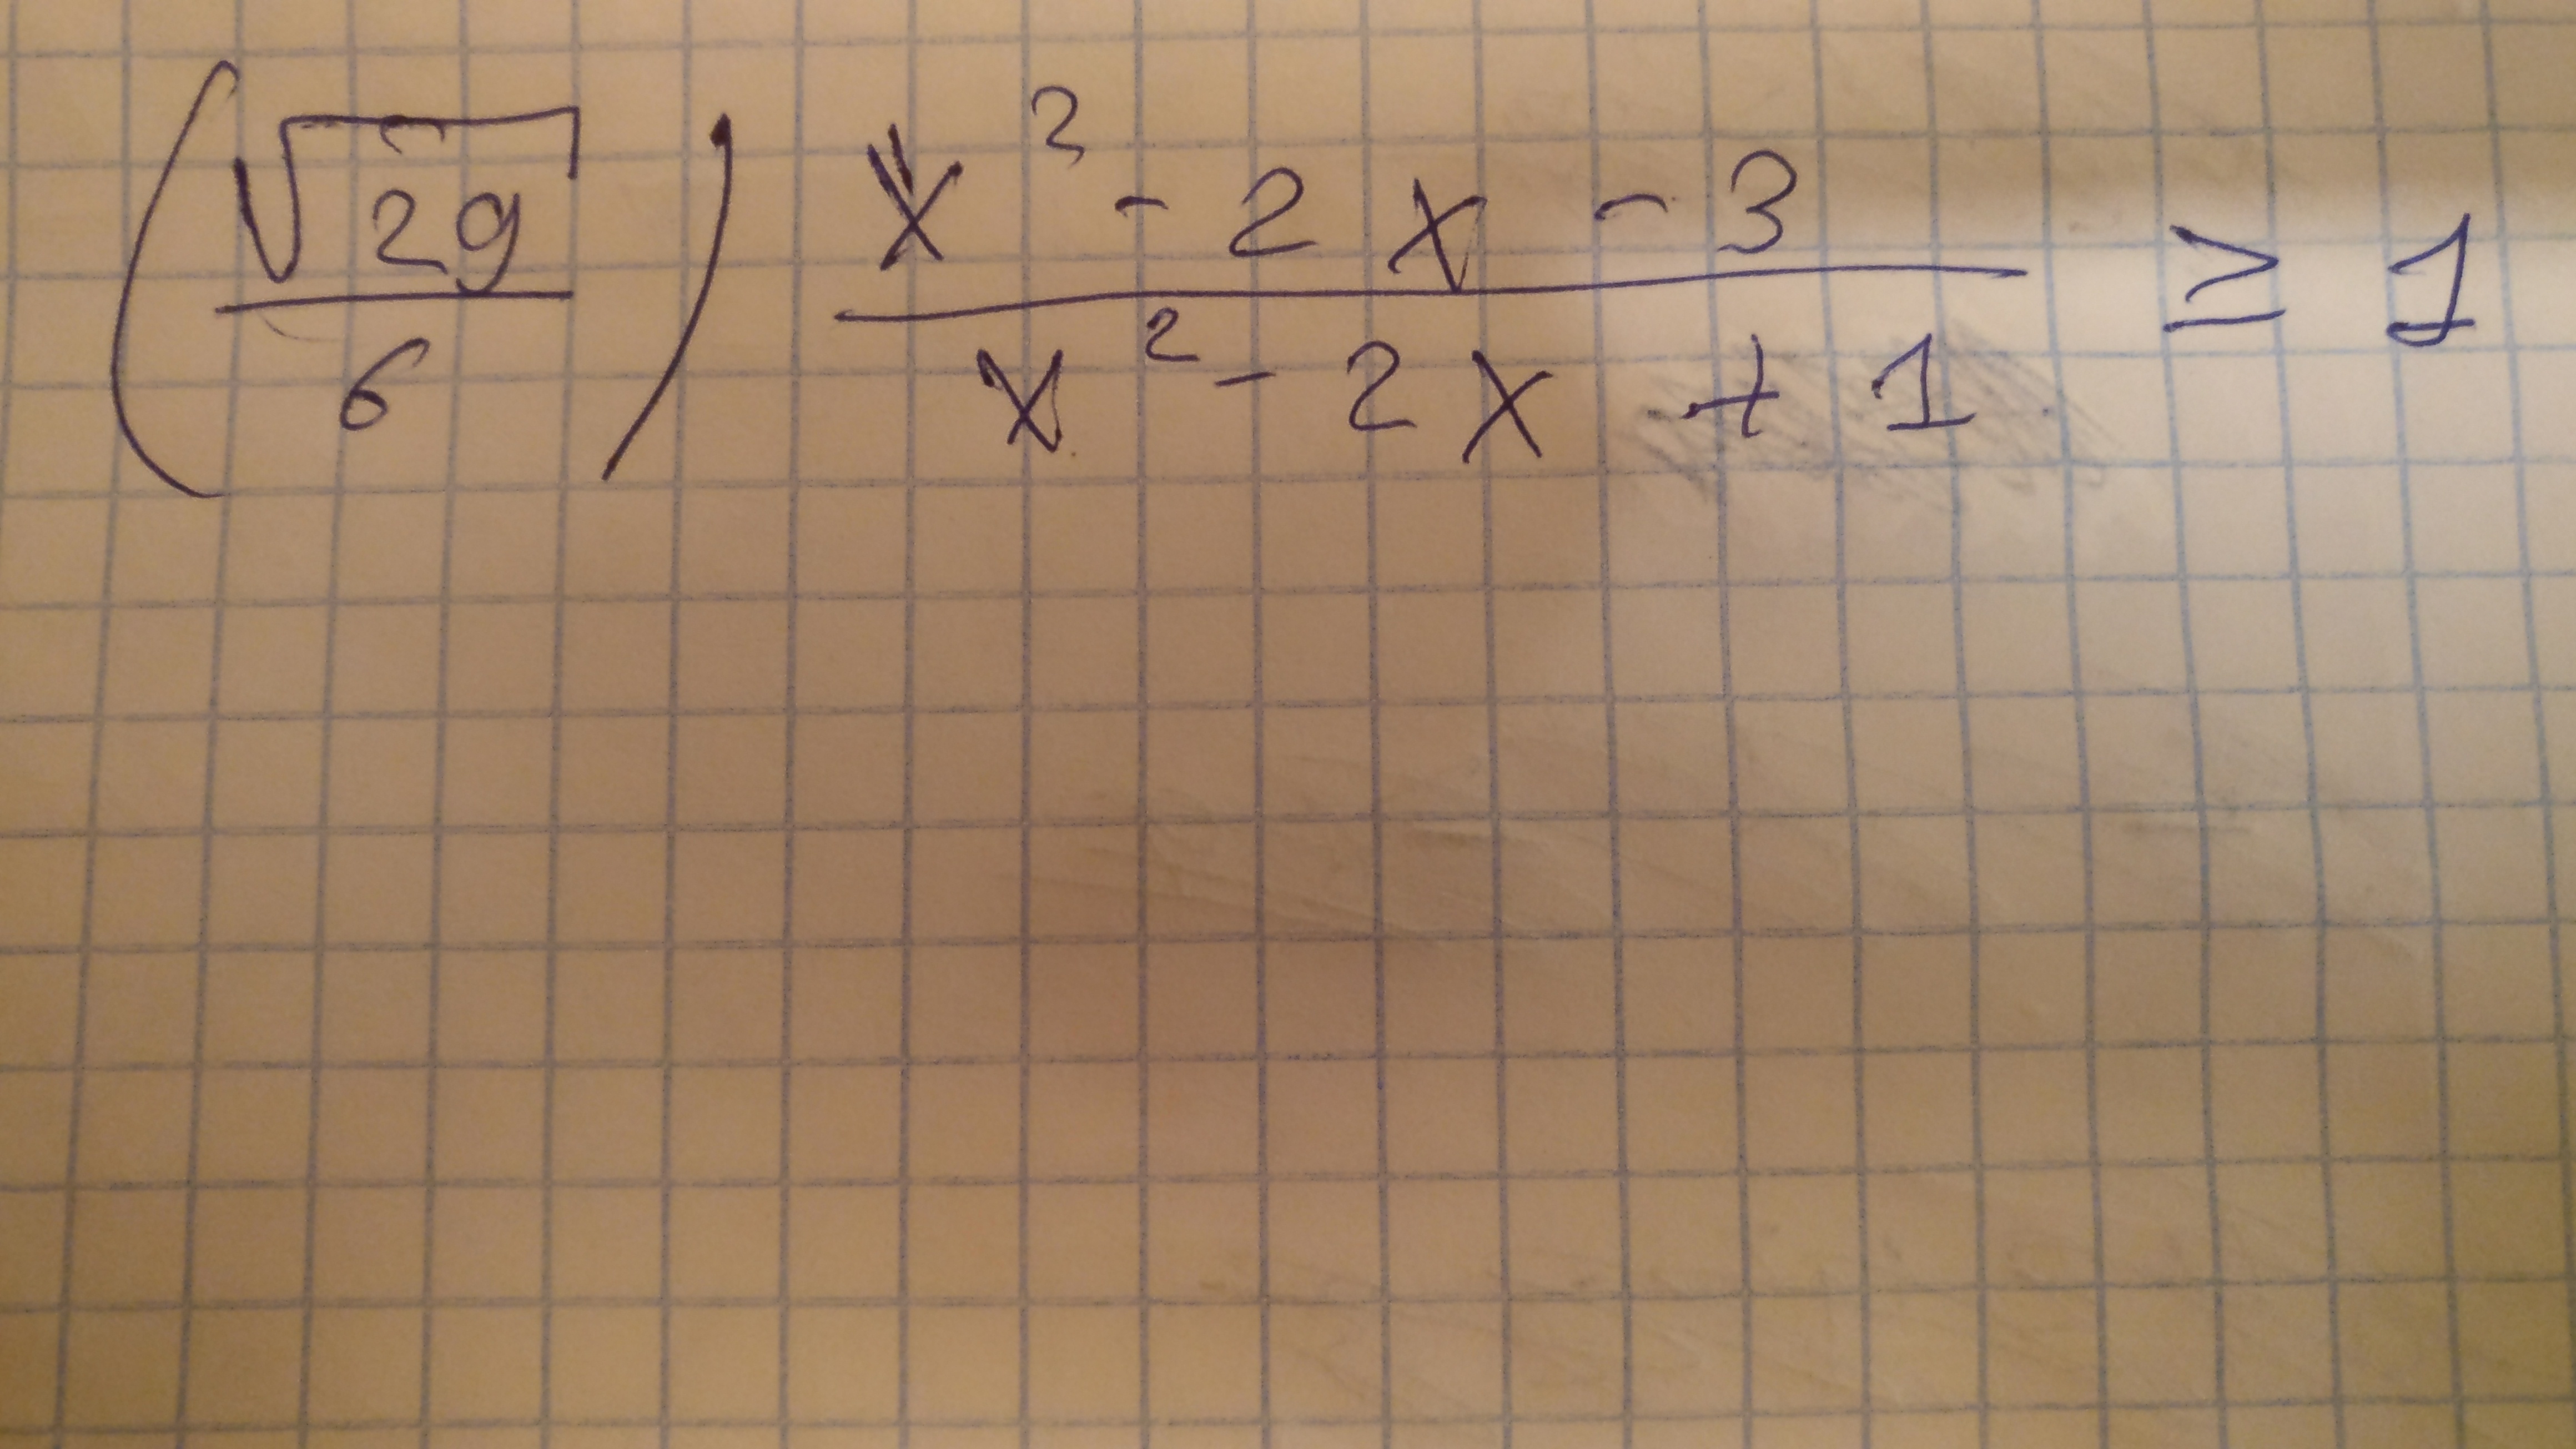 (√29/6) (x² - 2x - 3)/(x² - 2x + 1) ≥ 1